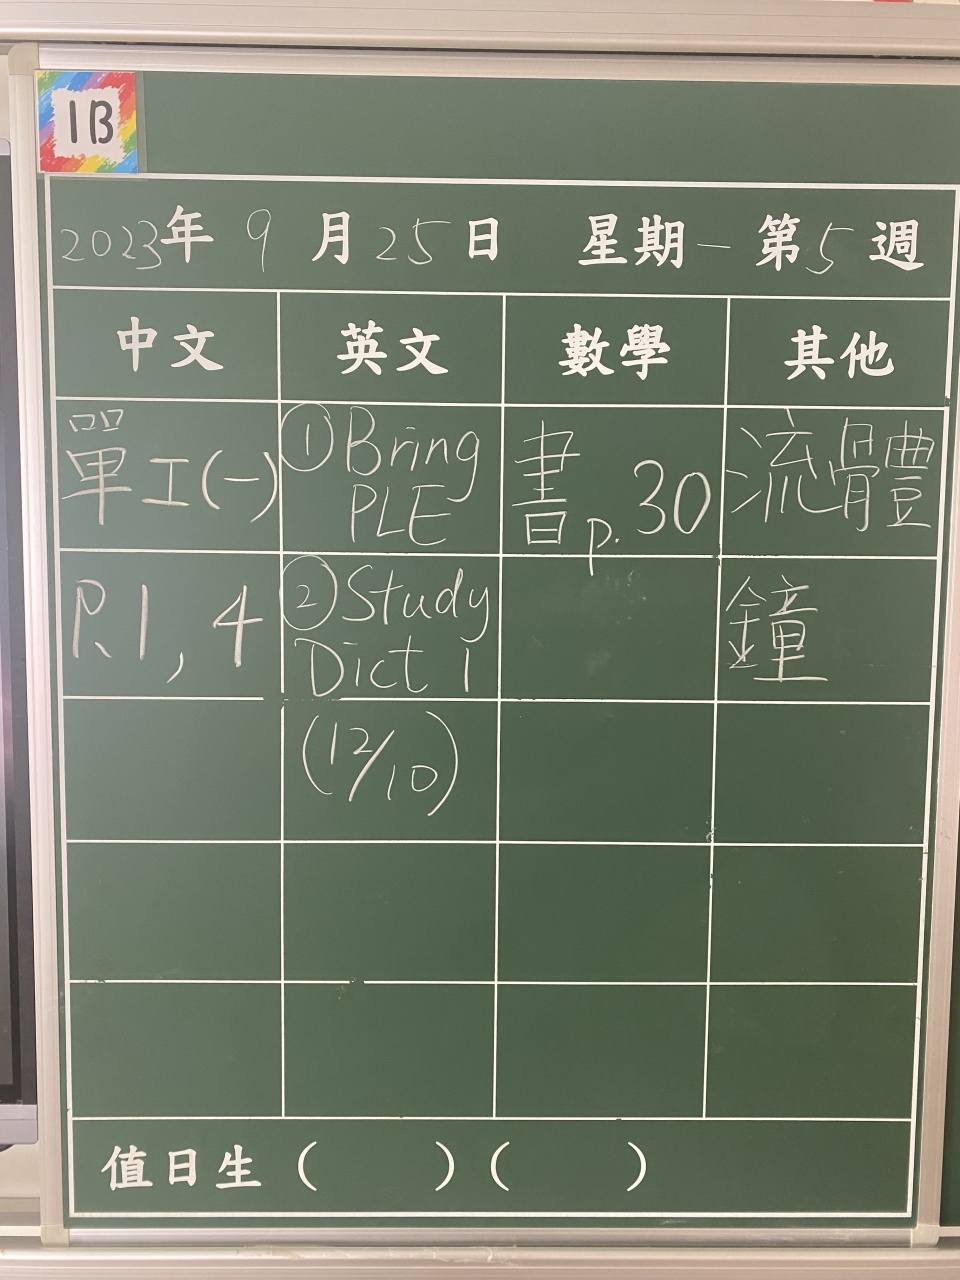 1B
2023年 9月25日 星期一 第5週
中文 英文 數學 其他
單工(一) ①Bring PLE 書p.30 流體
P.1, 4 ②Study Dict 1 鐘
(12/10)
值日生 ( ) ( )